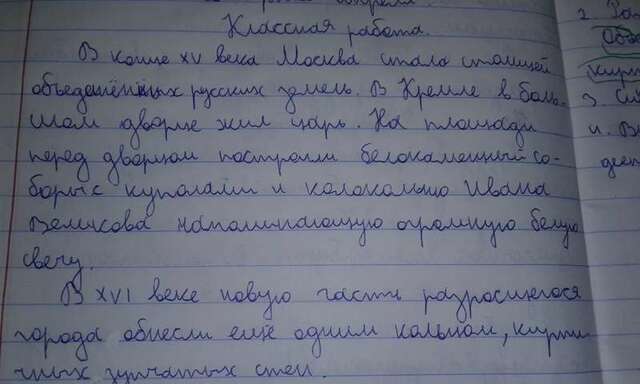 Классная работа.
В конце XV века Москва стала столицей
объеденённых русских земель. В Кремле в боль-
шом дворце жил царь. На площади
перед дворцом построили белокаменный со-
боры с куполами и колокольню Ивана
Великова напоминающую огромную белую
свечу.
В XVI веке новую часть разросшегося
города обнесли ещё одним кольцом, кирпи
чных зубчатых стен.
2.
3.
и.